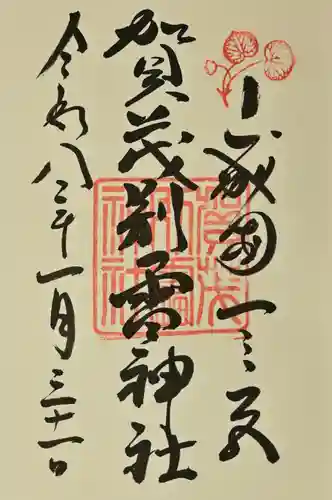 山城国一之宮
賀茂別雷神社
令和八年一月三十一日
賀茂別雷神社